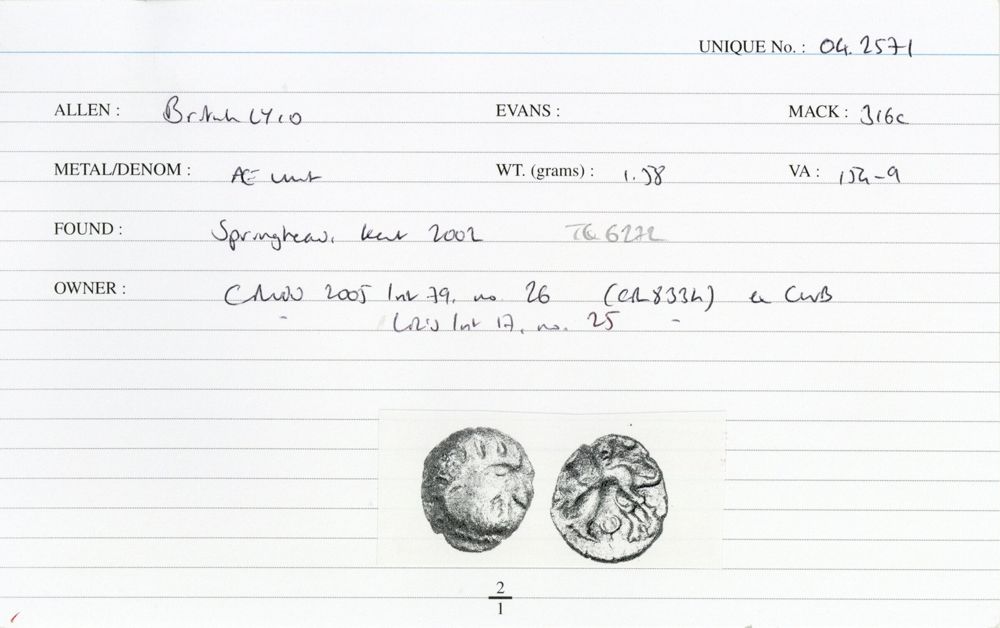 UNIQUE No. : 04.2571
ALLEN : British LY10 EVANS : MACK : 316c
METAL/DENOM : Æ unit WT. (grams) : 1.58 VA : 154-9
FOUND : Springhead, Kent 2002 TQ 6272
OWNER : 2005 list 79, no. 26 (CR833h) ex CWB
list 17, no. 25
2
1